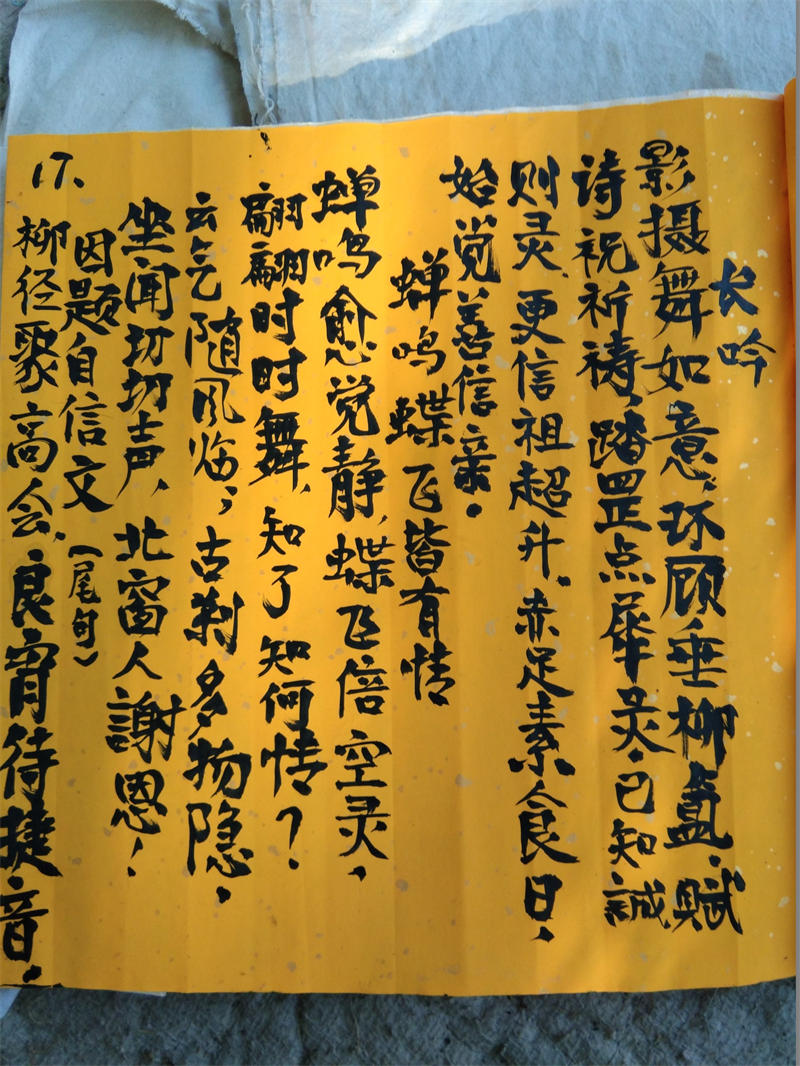 长吟
影摄舞如意,环顾垂柳,赋
诗祝祈祷,踏罡点犀灵,已知誠
则灵,更信祖超升,赤足素食日,
始觉善信亲。
蝉鸣蝶飞皆有情
蝉鸣愈觉静,蝶飞倍空灵,
翩翩时时舞,知了知何情?
云气随风临,古刹多物隐,
坐闻切切声,北窗人謝恩!
因题自信文(尾句)
柳径聚高会,良宵待捷音。
17、